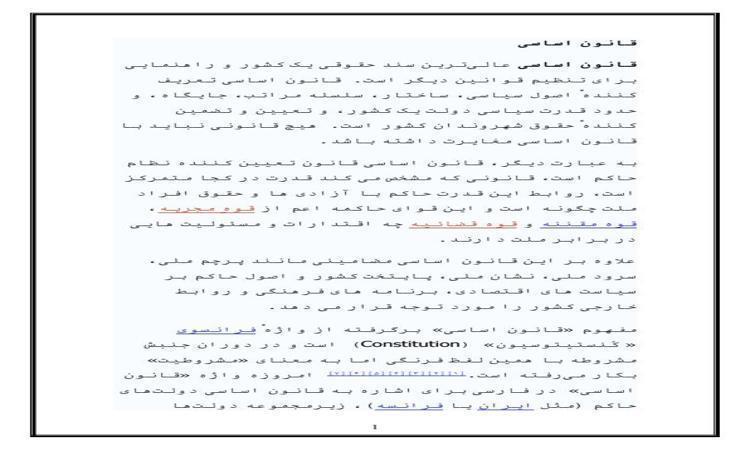 قانون اساسی
قانون اساسی عالی‌ترین سند حقوقی یک کشور و راهنمایی
برای تنظیم قوانین دیگر است. قانون اساسی تعریف
کنندهٔ اصول سیاسی، ساختار، سلسله مراتب، جایگاه، و
حدود قدرت سیاسی دولت یک کشور، و تعیین و تضمین
کنندهٔ حقوق شهروندان کشور است. هیچ قانونی نباید با
قانون اساسی مغایرت داشته باشد.
به عبارت دیگر، قانون اساسی قانون تعیین کننده نظام
حاکم است، قانونی که مشخص می کند قدرت در کجا متمرکز
است، روابط این قدرت حاکم با آزادی ها و حقوق افراد
ملت چگونه است و این قوای حاکمه اعم از قوه مجریه،
قوه مقننه و قوه قضائیه چه اقتدارات و مسئولیت هایی
در برابر ملت دارند.
علاوه بر این قانون اساسی مضامینی مانند پرچم ملی،
سرود ملی، نشان ملی، پایتخت کشور و اصول حاکم بر
سیاست های اقتصادی، برنامه های فرهنگی و روابط
خارجی کشور را مورد توجه قرار می دهد.
مفهوم «قانون اساسی» برگرفته از واژهٔ فرانسوی
«کُنستیتوسیون» (Constitution) است و در دوران جنبش
مشروطه با همین لفظ فرنگی اما به معنای «مشروطیت»
بکار می‌رفته است. امروزه واژه «قانون
اساسی» در فارسی برای اشاره به قانون اساسی دولت‌های
حاکم (مثل ایران یا فرانسه)، زیرمجموعه دولت‌ها
1